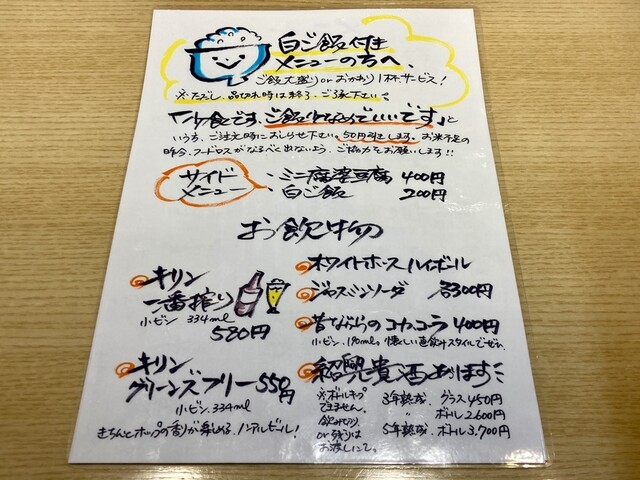 白ご飯付き
メニューの方へ、
ご飯大盛りorおかわり1杯サービス!
※ただし、品切れ時は終了。ご了承下さい。
「少食です、ご飯少なめでいいです」と
いう方、ご注文時にお知らせ下さい。50円引きします。お米不足の
昨今、フードロスがなるべく出ないよう、ご協力をお願いします!!
サイドメニュー
・ミニ麻婆豆腐 400円
・白ご飯 200円
お飲み物
キリン
一番搾り
小ビン 334ml
580円
キリン
グリーンズフリー 550円
小ビン 334ml
きちんとホップの香りが楽しめる、ノンアルビール!
ホワイトホースハイボール
ジャスミンソーダ 各300円
昔ながらのコカコーラ 400円
小ビン 190ml。懐しい直飲みスタイルでぜひ。
紹興貴酒あります
※ボトルキープ
できません。
飲みきり
or残りは
お渡しにて。
3年熟成、グラス450円
〃 ボトル2.600円
5年熟成、ボトル3,700円